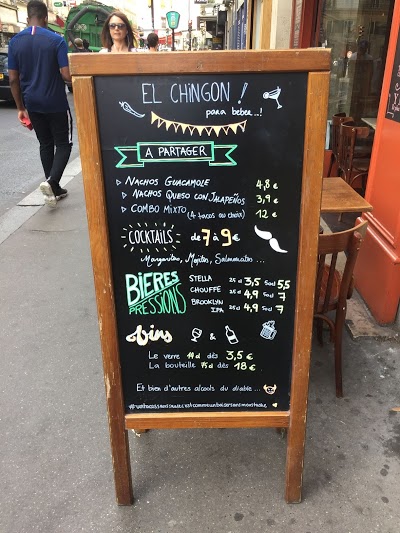 EL CHINGON !
para beber...!
A PARTAGER
▷ NACHOS GUACAMOLE 4,8 €
▷ NACHOS QUESO CON JALAPEÑOS 3,9 €
▷ COMBO MIXTO (4 tacos au choix) 12 €
COCKTAILS de 7 à 9€
Margaritas, Mojitos,
BIERES PRESSIONS
STELLA 25cl 3,5 50cl 5,5
CHOUFFE 25cl 4,9 50cl 7
BROOKLYN IPA 25cl 4,9 50cl 7
Vins
Le verre 14cl dès 3,5 €
La bouteille 75cl dès 18 €
Et bien d'autres alcools du diable...